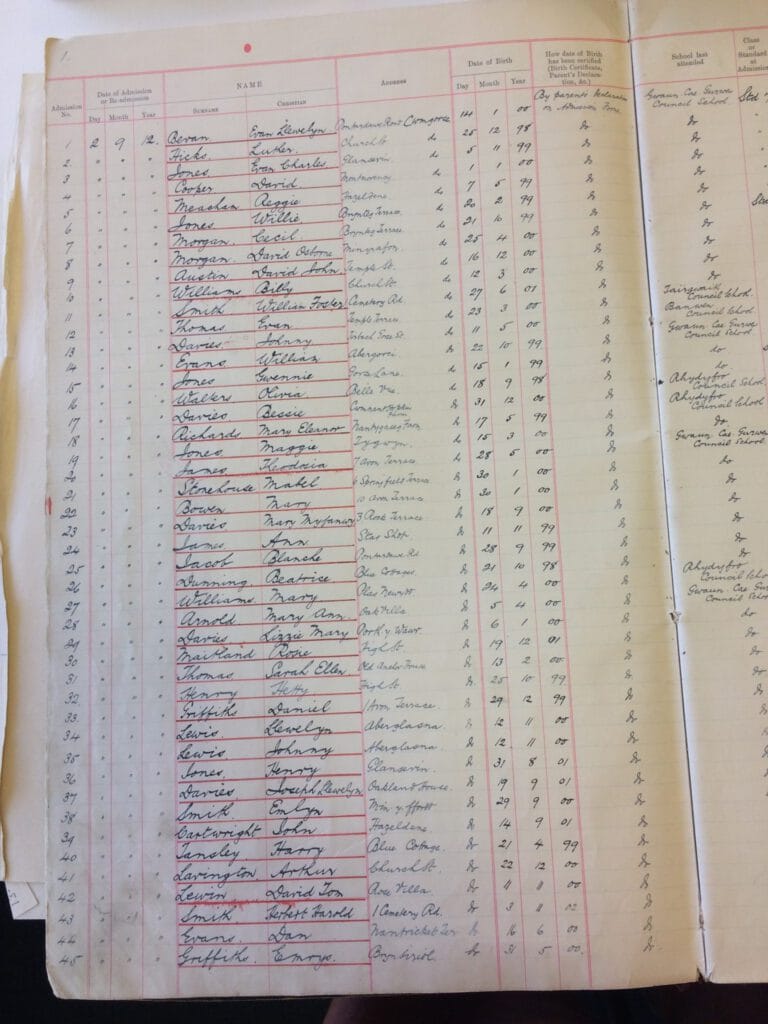 1.
Admission No. Date of Admission or Re-admission Day Month Year NAME SURNAME CHRISTIAN ADDRESS Date of Birth Day Month Year How date of Birth has been certified (Birth Certificate, Parent's Declaration, &c.) School last attended Class or Standard at Admission
1 2 9 12. Bevan Evan Llewelyn Pontardawe Road Cwmgorse 14 1 00 By parents' declaration on Admission Form Gwaun Cae Gurwen Council School Std
2 " " " Hicks Luther Church St do 25 12 98 do do
3 " " " Jones Evan Charles Glanseirin do 5 11 99 do do
4 " " " Cooper David Montmorency do 1 1 00 do do
5 " " " Meachan Reggie Hazeldene do 7 5 99 do do
6 " " " Jones Willie Brynteg Terrace do 20 2 99 do do
7 " " " Morgan Cecil Brynteg Terrace do 21 10 99 do do
8 " " " Morgan David Osborne Minyrafon do 25 4 00 do do
9 " " " Austin David John Temple St. do 16 12 00 do do
10 " " " Williams Billy Church St. do 12 3 00 do do
11 " " " Smith William Foster Cemetery Rd do 27 6 01 do Council School
12 " " " Thomas Evan Temple Terrace do 23 3 00 do Banwen Council School
13 " " " Davies Johnny do 11 5 00 do Gwaun Cae Gurwen Council School
14 " " " Evans William Abergorci do 22 10 99 do do
15 " " " Jones Gwennie Gors Lane do 15 1 99 do do
16 " " " Walters Olivia Belle Vue do 18 9 98 do Rhydyfro Council School
17 " " " Davies Bessie do 31 12 00 do Rhydyfro Council School
18 " " " Richards Mary Eleanor Nantygaseg Farm do 17 5 99 do do
19 " " " Jones Maggie Tygwyn do 15 3 00 do Gwaun Cae Gurwen Council School
20 " " " James Theodosia 7 Avon Terrace do 28 5 00 do do
21 " " " Stonehouse Mabel 6 Springfield Terrace do 30 1 00 do do
22 " " " Bowen Mary 10 Avon Terrace do 30 1 00 do do
23 " " " Davies Mary Myfanwy 3 Rock Terrace do 18 9 00 do do
24 " " " James Ann Star Shop do 11 11 99 do do
25 " " " Jacob Blanche Pontardawe Rd do 28 9 99 do do
26 " " " Dunning Beatrice Blue Cottages do 21 10 98 do Rhydyfro Council School
27 " " " Williams Mary Plas Newydd do 24 4 00 do Gwaun Cae Gurwen Council School
28 " " " Arnold Mary Ann Oak Villa do 5 4 00 do do
29 " " " Davies Lizzie Mary do 6 1 00 do do
30 " " " Maitland Rosie High St. do 19 12 01 do do
31 " " " Thomas Sarah Ellen Old Anchor House do 13 2 00 do do
32 " " " Henry Hetty High St do 25 10 99 do do
33 " " " Griffiths Daniel 1 Avon Terrace do 29 12 99 do do
34 " " " Lewis Llewelyn Aberglasna do 12 11 00 do do
35 " " " Lewis Johnny Aberglasna do 12 11 00 do do
36 " " " Jones Henry Glanseirin do 31 8 01 do do
37 " " " Davies Joseph Llewelyn Oakland House do 19 9 01 do do
38 " " " Smith Emlyn Min y ffordd do 29 9 00 do do
39 " " " Cartwright John Hazeldene do 14 9 01 do do
40 " " " Tansley Harry Blue Cottage do 21 4 99 do do
41 " " " Lavington Arthur Church St. do 22 12 00 do do
42 " " " Lewin David Tom Rose Villa do 11 11 00 do do
43 " " " Smith Herbert Harold 1 Cemetery Rd. do 3 11 02 do do
44 " " " Evans Dan Nantricket Ter do 16 6 00 do do
45 " " " Griffiths Emrys Bryn Siriol do 31 5 00 do do